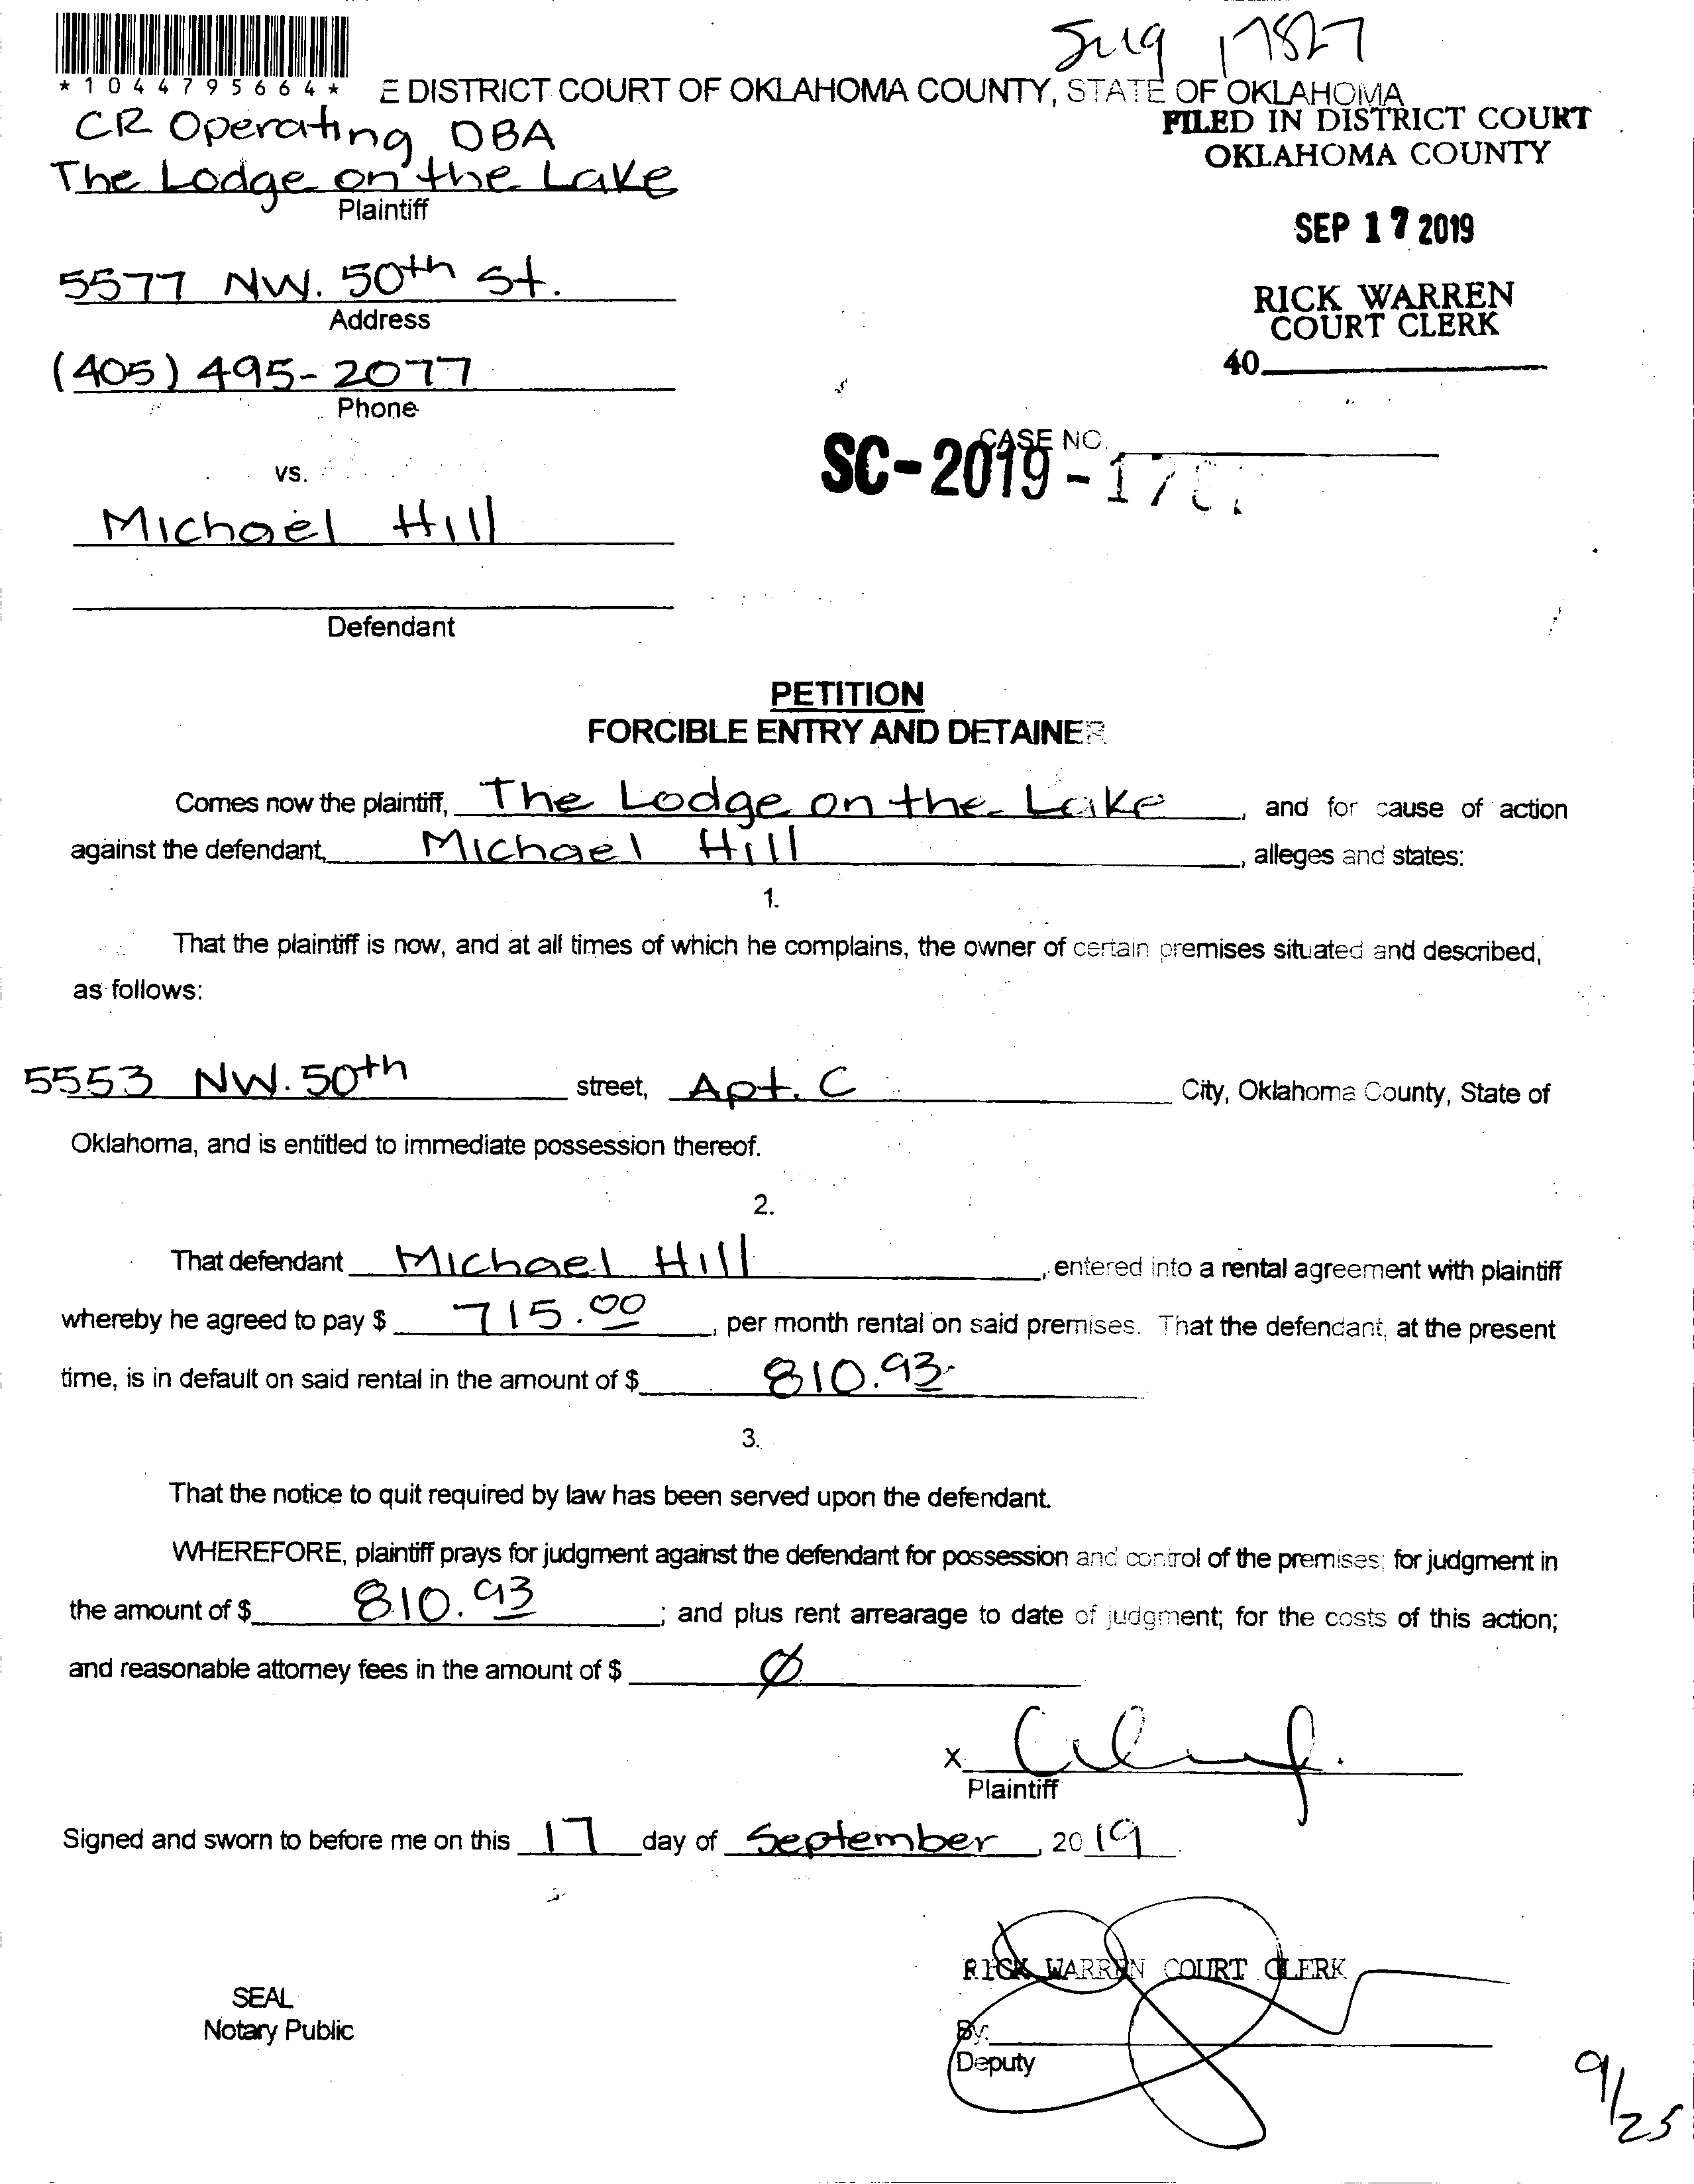 17827
*1044795664*
E DISTRICT COURT OF OKLAHOMA COUNTY, STATE OF OKLAHOMA
FILED IN DISTRICT COURT
OKLAHOMA COUNTY
SEP 17 2019
RICK WARREN
COURT CLERK
40
CR Operating DBA
The Lodge on the Lake
Plaintiff
5577 NW. 50th St.
Address
(405) 495-2077
Phone
CASE NO.
SC-2019-
vs.
Michael Hill
Defendant
PETITION
FORCIBLE ENTRY AND DETAINER
Comes now the plaintiff, The Lodge on the Lake, and for cause of action
against the defendant, Michael Hill, alleges and states:
1.
That the plaintiff is now, and at all times of which he complains, the owner of certain premises situated and described,
as follows:
5553 NW. 50th street, Apt. C City, Oklahoma County, State of
Oklahoma, and is entitled to immediate possession thereof.
2.
That defendant Michael Hill, entered into a rental agreement with plaintiff
whereby he agreed to pay $ 715.00, per month rental on said premises. That the defendant, at the present
time, is in default on said rental in the amount of $ 810.93
3.
That the notice to quit required by law has been served upon the defendant.
WHEREFORE, plaintiff prays for judgment against the defendant for possession and control of the premises; for judgment in
the amount of $ 810.93; and plus rent arrearage to date of judgment; for the costs of this action;
and reasonable attorney fees in the amount of $ Ø
X
Plaintiff
Signed and sworn to before me on this 17 day of September, 2019
RICK WARREN COURT CLERK
SEAL
Notary Public
By:
Deputy
9/25